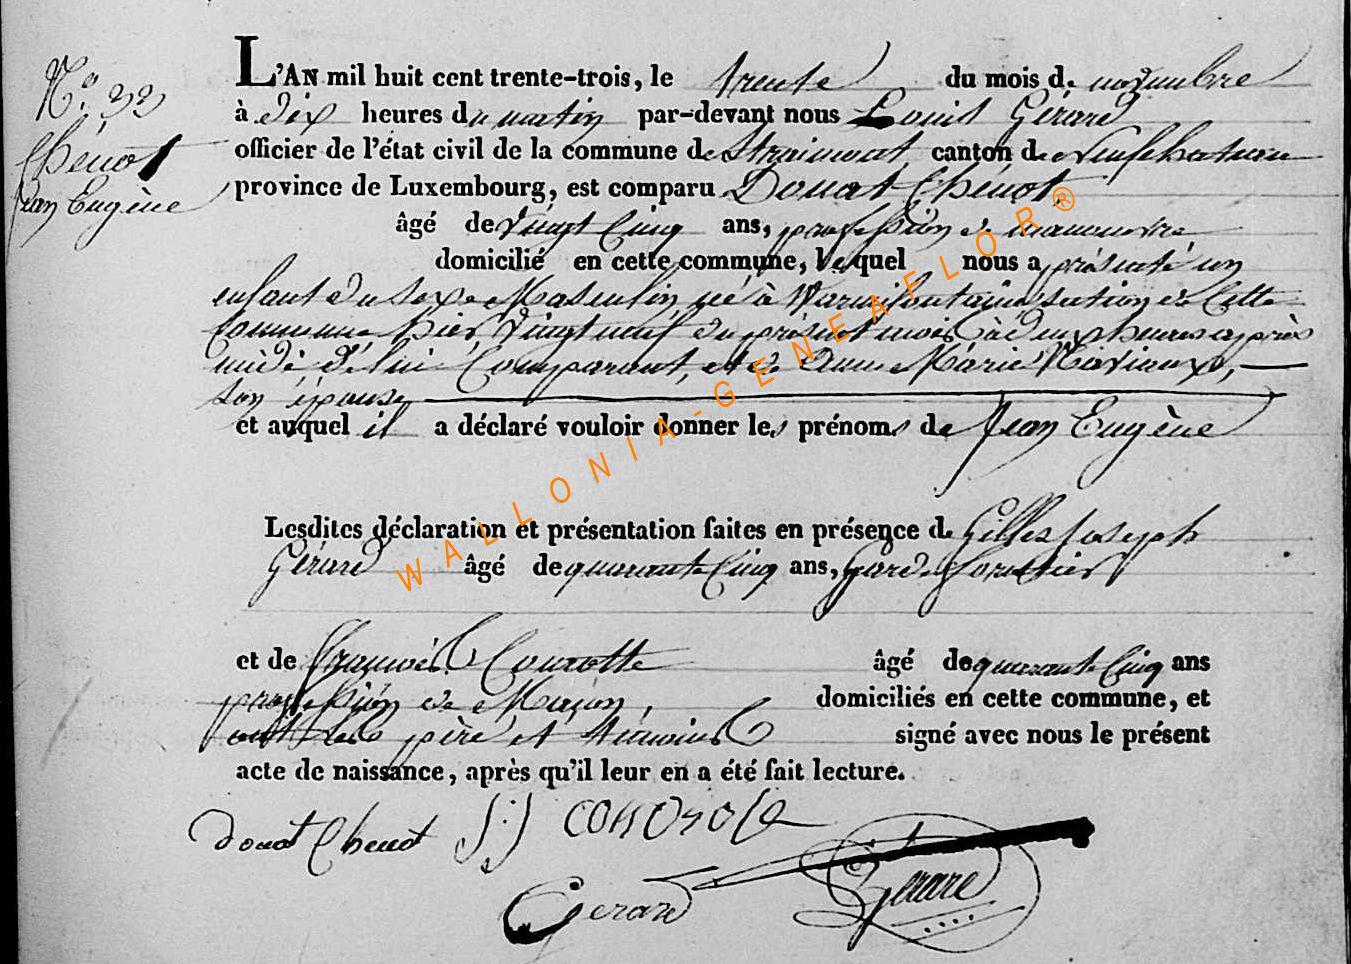 N.° 32
Chénot
Jean Eugène
L'AN mil huit cent trente-trois, le trente du mois de novembre
à dix heures du matin par-devant nous Louis Gérard
officier de l'état civil de la commune de Straimont, canton de Neufchateau
province de Luxembourg, est comparu Donat Chénot,
âgé de vingt cinq ans, profession de manoeuvre
domicilié en cette commune, lequel nous a présenté un
enfant du sexe Masculin né à Warmifontaine section de Cette
Commune hier vingt neuf du présent mois à deux heures après
midi de lui Comparant, et de Anne Marie Naviaux,
son épouse
et auquel il a déclaré vouloir donner les prénoms de Jean Eugène
Lesdites déclaration et présentation faites en présence de Gilles Joseph
Gérard âgé de quarante Cinq ans, Garde Forestier
et de François Conrotte âgé de quarante Cinq ans
profession de Maçon, domiciliés en cette commune, et
ont les père et témoins signé avec nous le présent
acte de naissance, après qu'il leur en a été fait lecture.
donat Chenot
Gerard
Gerard
WALLONIA-GENEAFLOR®